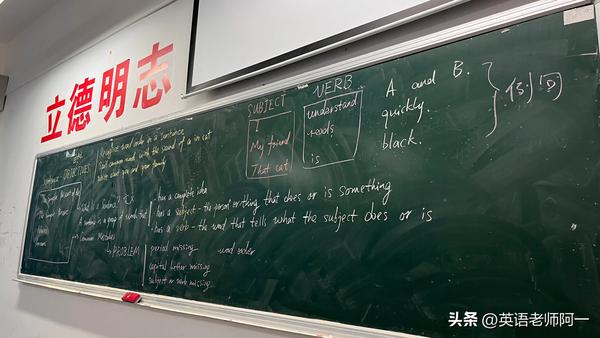 立德明志
OBJECTIVES
Recognize word order in a sentence
The Simple Present of Be
SUBJECT
I
My friend
That cat
VERB
understand
reads
is
A and B.
quickly.
black.
What is a Sentence?
A sentence is a group of words that
- has a complete idea
- has a subject - the person or thing that does or is something
- has a verb - the word that tells what the subject does or is
Common Mistakes
PROBLEM
period missing
word order
capital letter missing
subject or verb missing
头条 @英语老师阿一